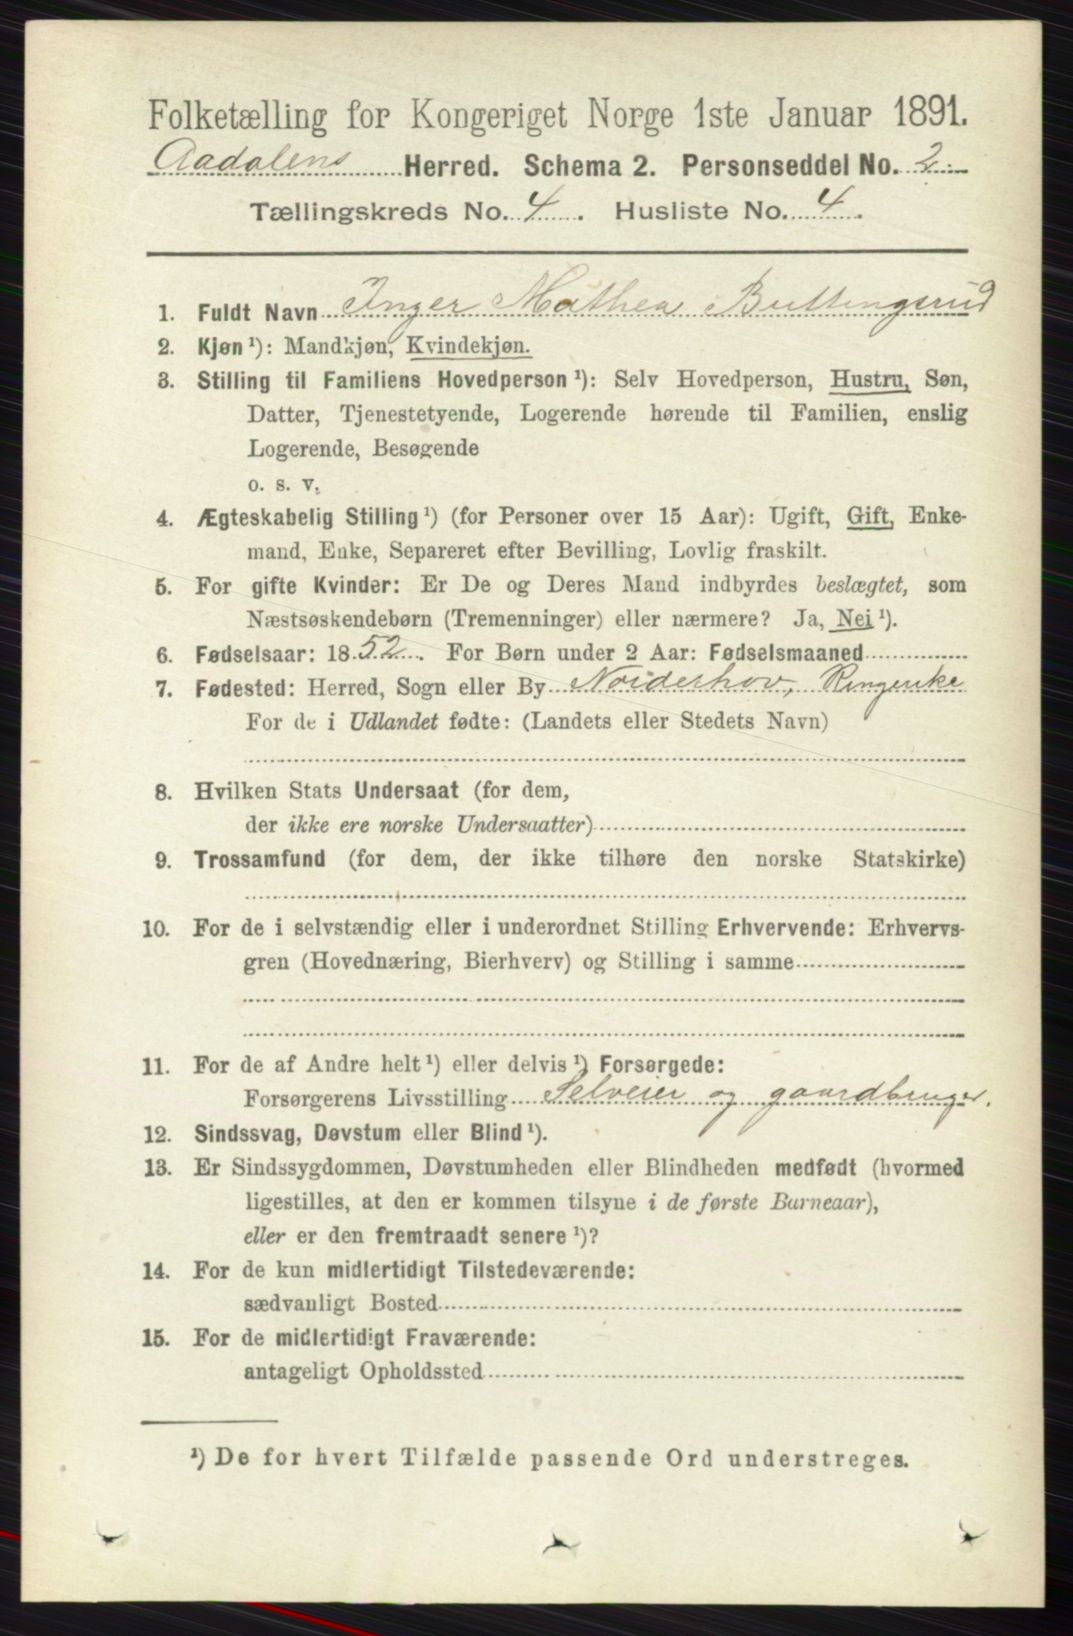 Folketælling for Kongeriget Norge 1ste Januar 1891.
Aadalens Herred. Schema 2. Personseddel No. 2.
Tællingskreds No. 4. Husliste No. 4.
1. Fuldt Navn Inger Mathea Buttingsrud
2. Kjøn ¹): Mandkjøn, Kvindekjøn.
3. Stilling til Familiens Hovedperson ¹): Selv Hovedperson, Hustru, Søn,
Datter, Tjenestetyende, Logerende hørende til Familien, enslig
Logerende, Besøgende
o. s. v.
4. Ægteskabelig Stilling ¹) (for Personer over 15 Aar): Ugift, Gift, Enke-
mand, Enke, Separeret efter Bevilling, Lovlig fraskilt.
5. For gifte Kvinder: Er De og Deres Mand indbyrdes beslægtet, som
Næstsøskendebørn (Tremenninger) eller nærmere? Ja, Nei ¹).
6. Fødselsaar: 1852. For Børn under 2 Aar: Fødselsmaaned
7. Fødested: Herred, Sogn eller By Norderhov, Ringerike
For de i Udlandet fødte: (Landets eller Stedets Navn)
8. Hvilken Stats Undersaat (for dem,
der ikke ere norske Undersaatter)
9. Trossamfund (for dem, der ikke tilhøre den norske Statskirke)
10. For de i selvstændig eller i underordnet Stilling Erhvervende: Erhvervs-
gren (Hovednæring, Bierhverv) og Stilling i samme
11. For de af Andre helt ¹) eller delvis ¹) Forsørgede:
Forsørgerens Livsstilling Selveier og gaardbruger.
12. Sindssvag, Døvstum eller Blind ¹).
13. Er Sindssygdommen, Døvstumheden eller Blindheden medfødt (hvormed
ligestilles, at den er kommen tilsyne i de første Barneaar),
eller er den fremtraadt senere ¹)?
14. For de kun midlertidigt Tilstedeværende:
sædvanligt Bosted
15. For de midlertidigt Fraværende:
antageligt Opholdssted
¹) De for hvert Tilfælde passende Ord understreges.